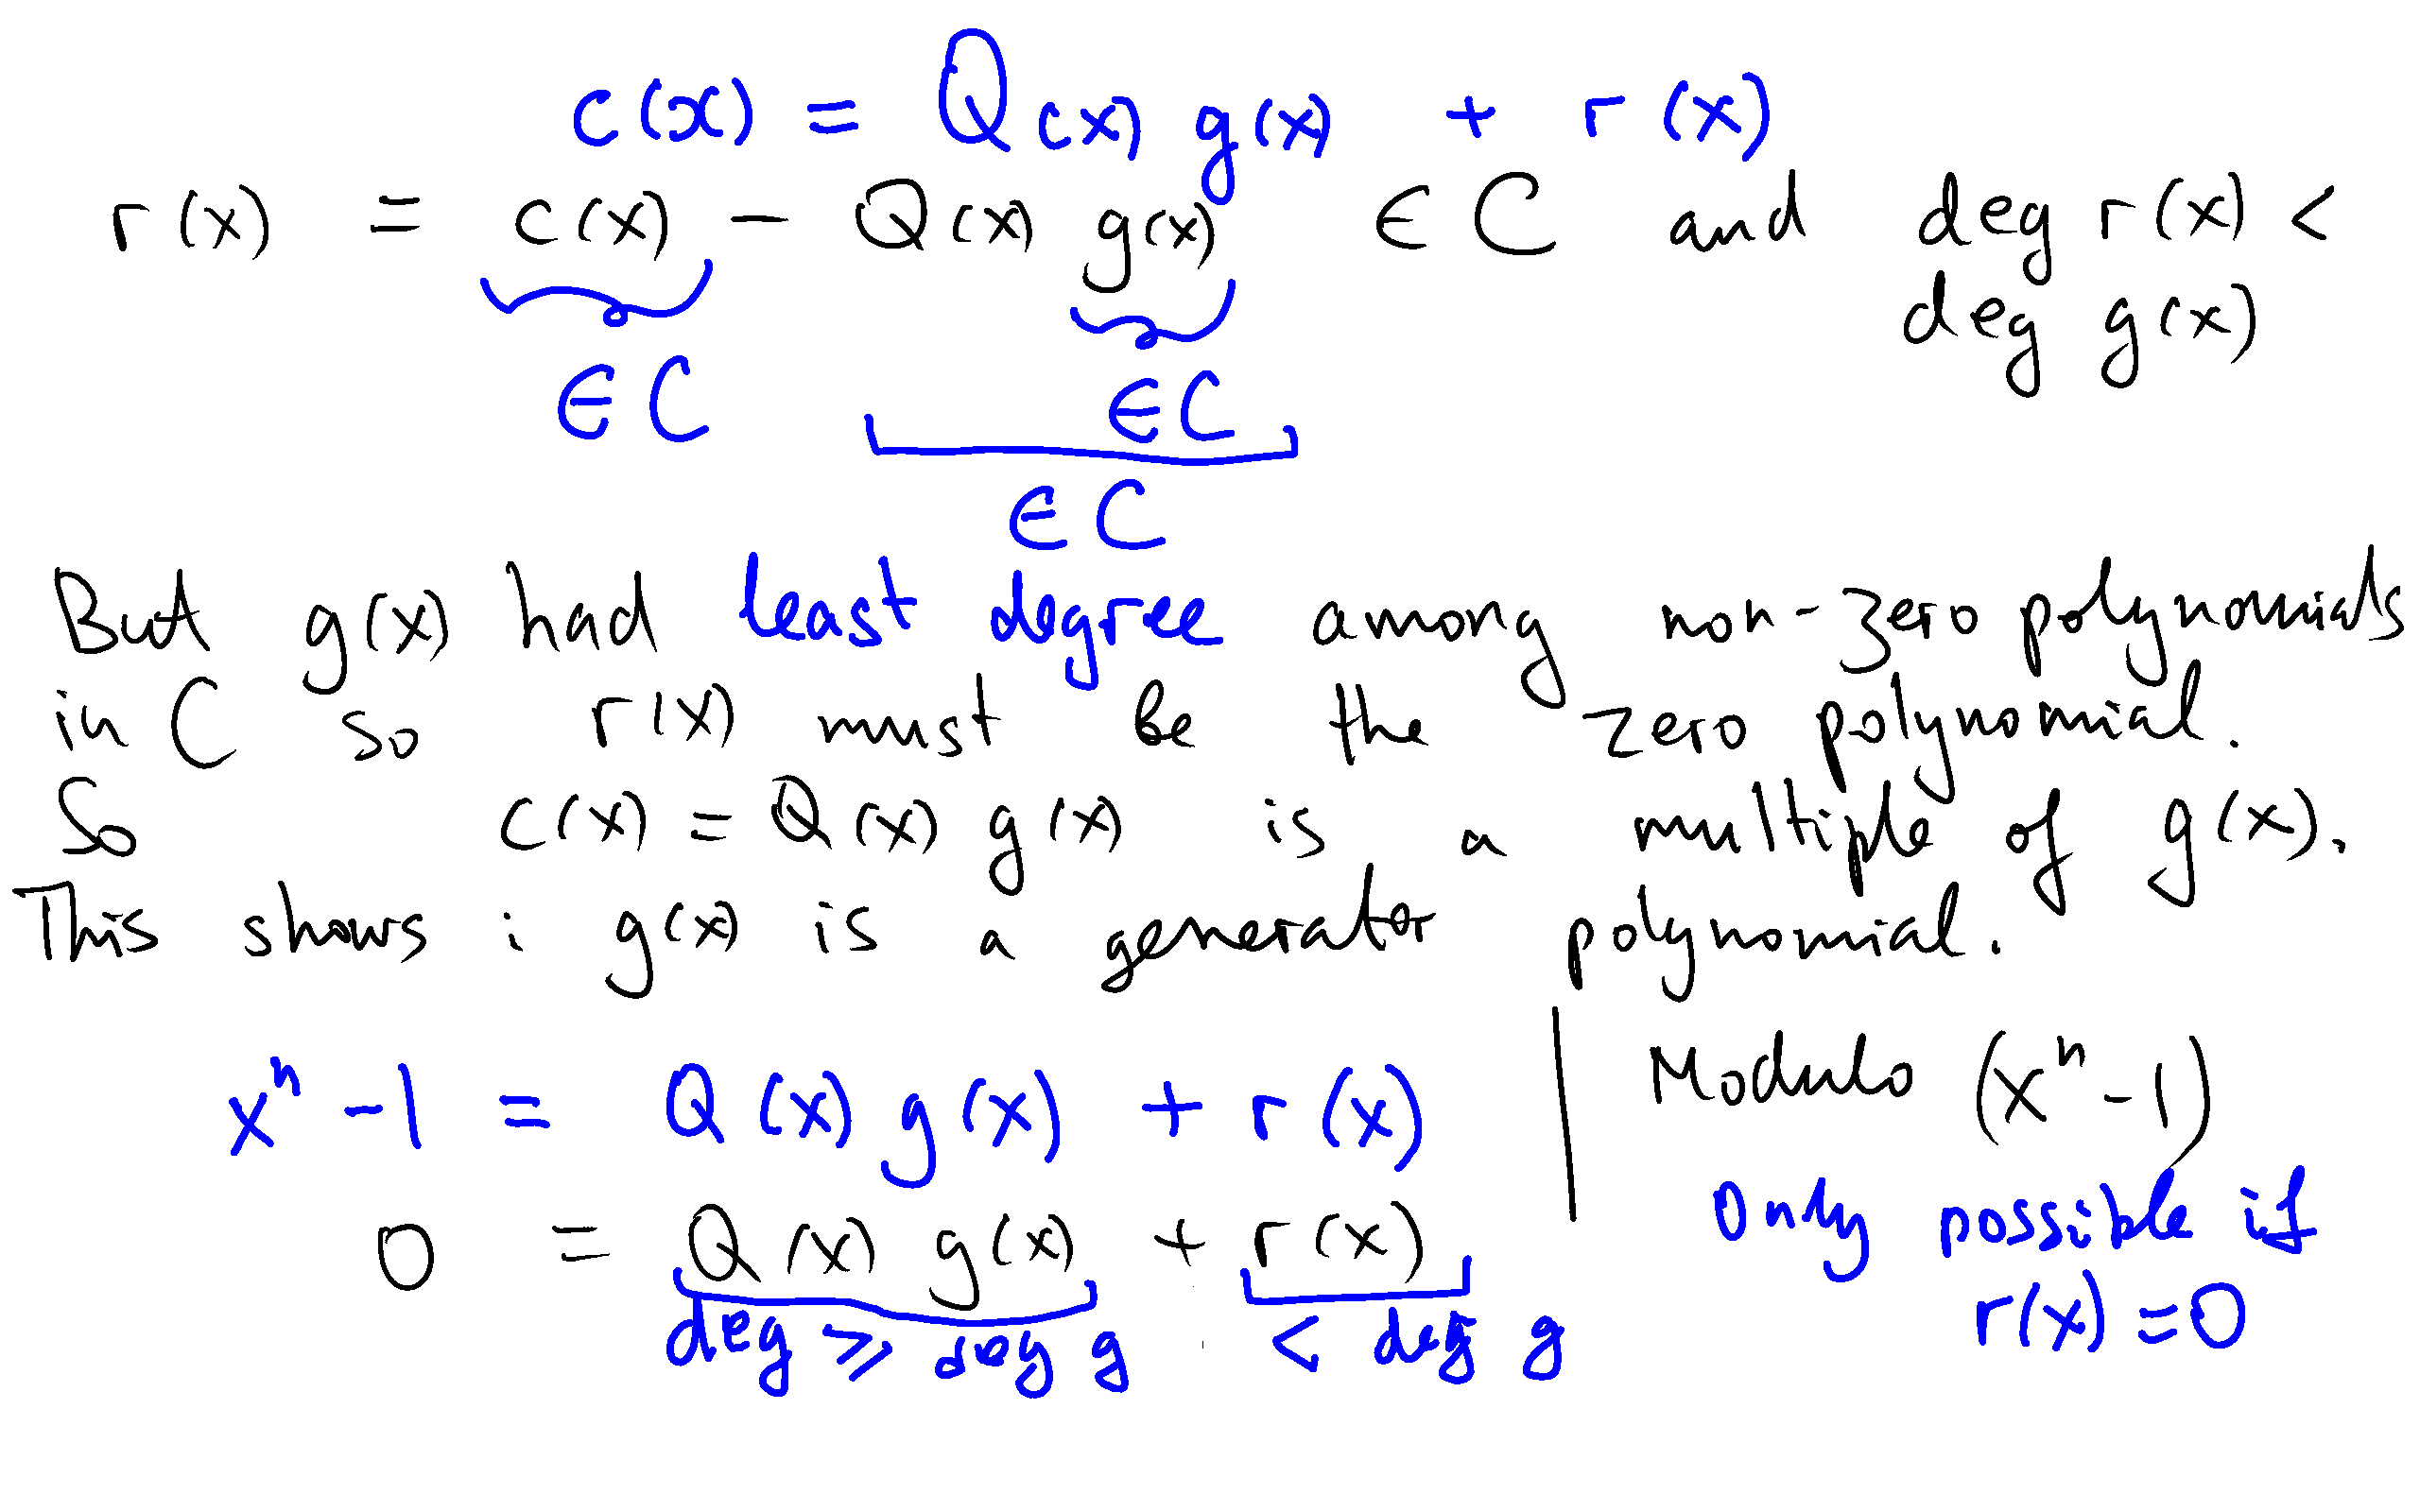 c(x) = Q(x) g(x) + r(x)
r(x) = c(x) - Q(x) g(x) ∈ C and deg r(x) <
deg g(x)
∈ C ∈ C
∈ C
But g(x) had least degree among non-zero polynomials
in C so r(x) must be the zero polynomial.
So c(x) = Q(x) g(x) is a multiple of g(x).
This shows : g(x) is a generator polynomial.
xⁿ - 1 = Q(x) g(x) + r(x) | Modulo (xⁿ - 1)
0 = Q(x) g(x) + r(x) Only possible if
deg ⩾ deg g < deg g r(x) = 0